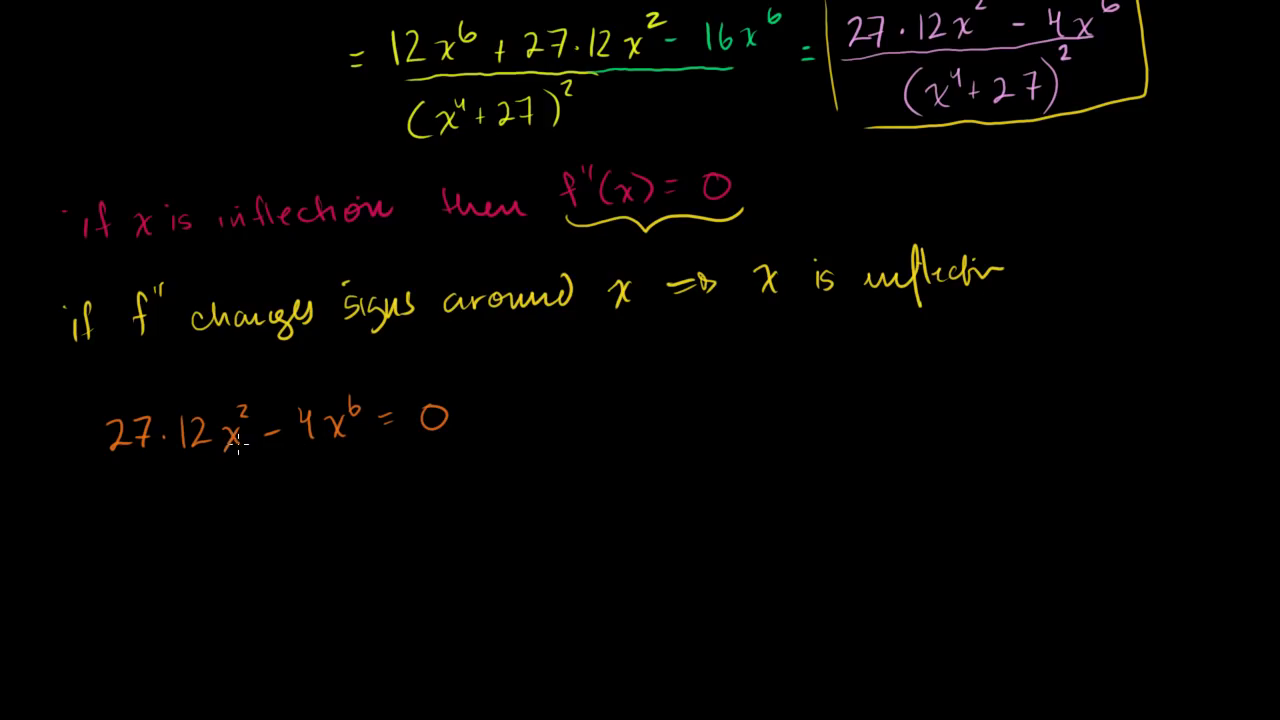 = \frac{12x^6 + 27 \cdot 12x^2 - 16x^6}{(x^4 + 27)^2} = \frac{27 \cdot 12x^2 - 4x^6}{(x^4 + 27)^2}
if x is inflection then f''(x) = 0
if f'' changes signs around x ⇒ x is inflection
27 · 12x² - 4x⁶ = 0